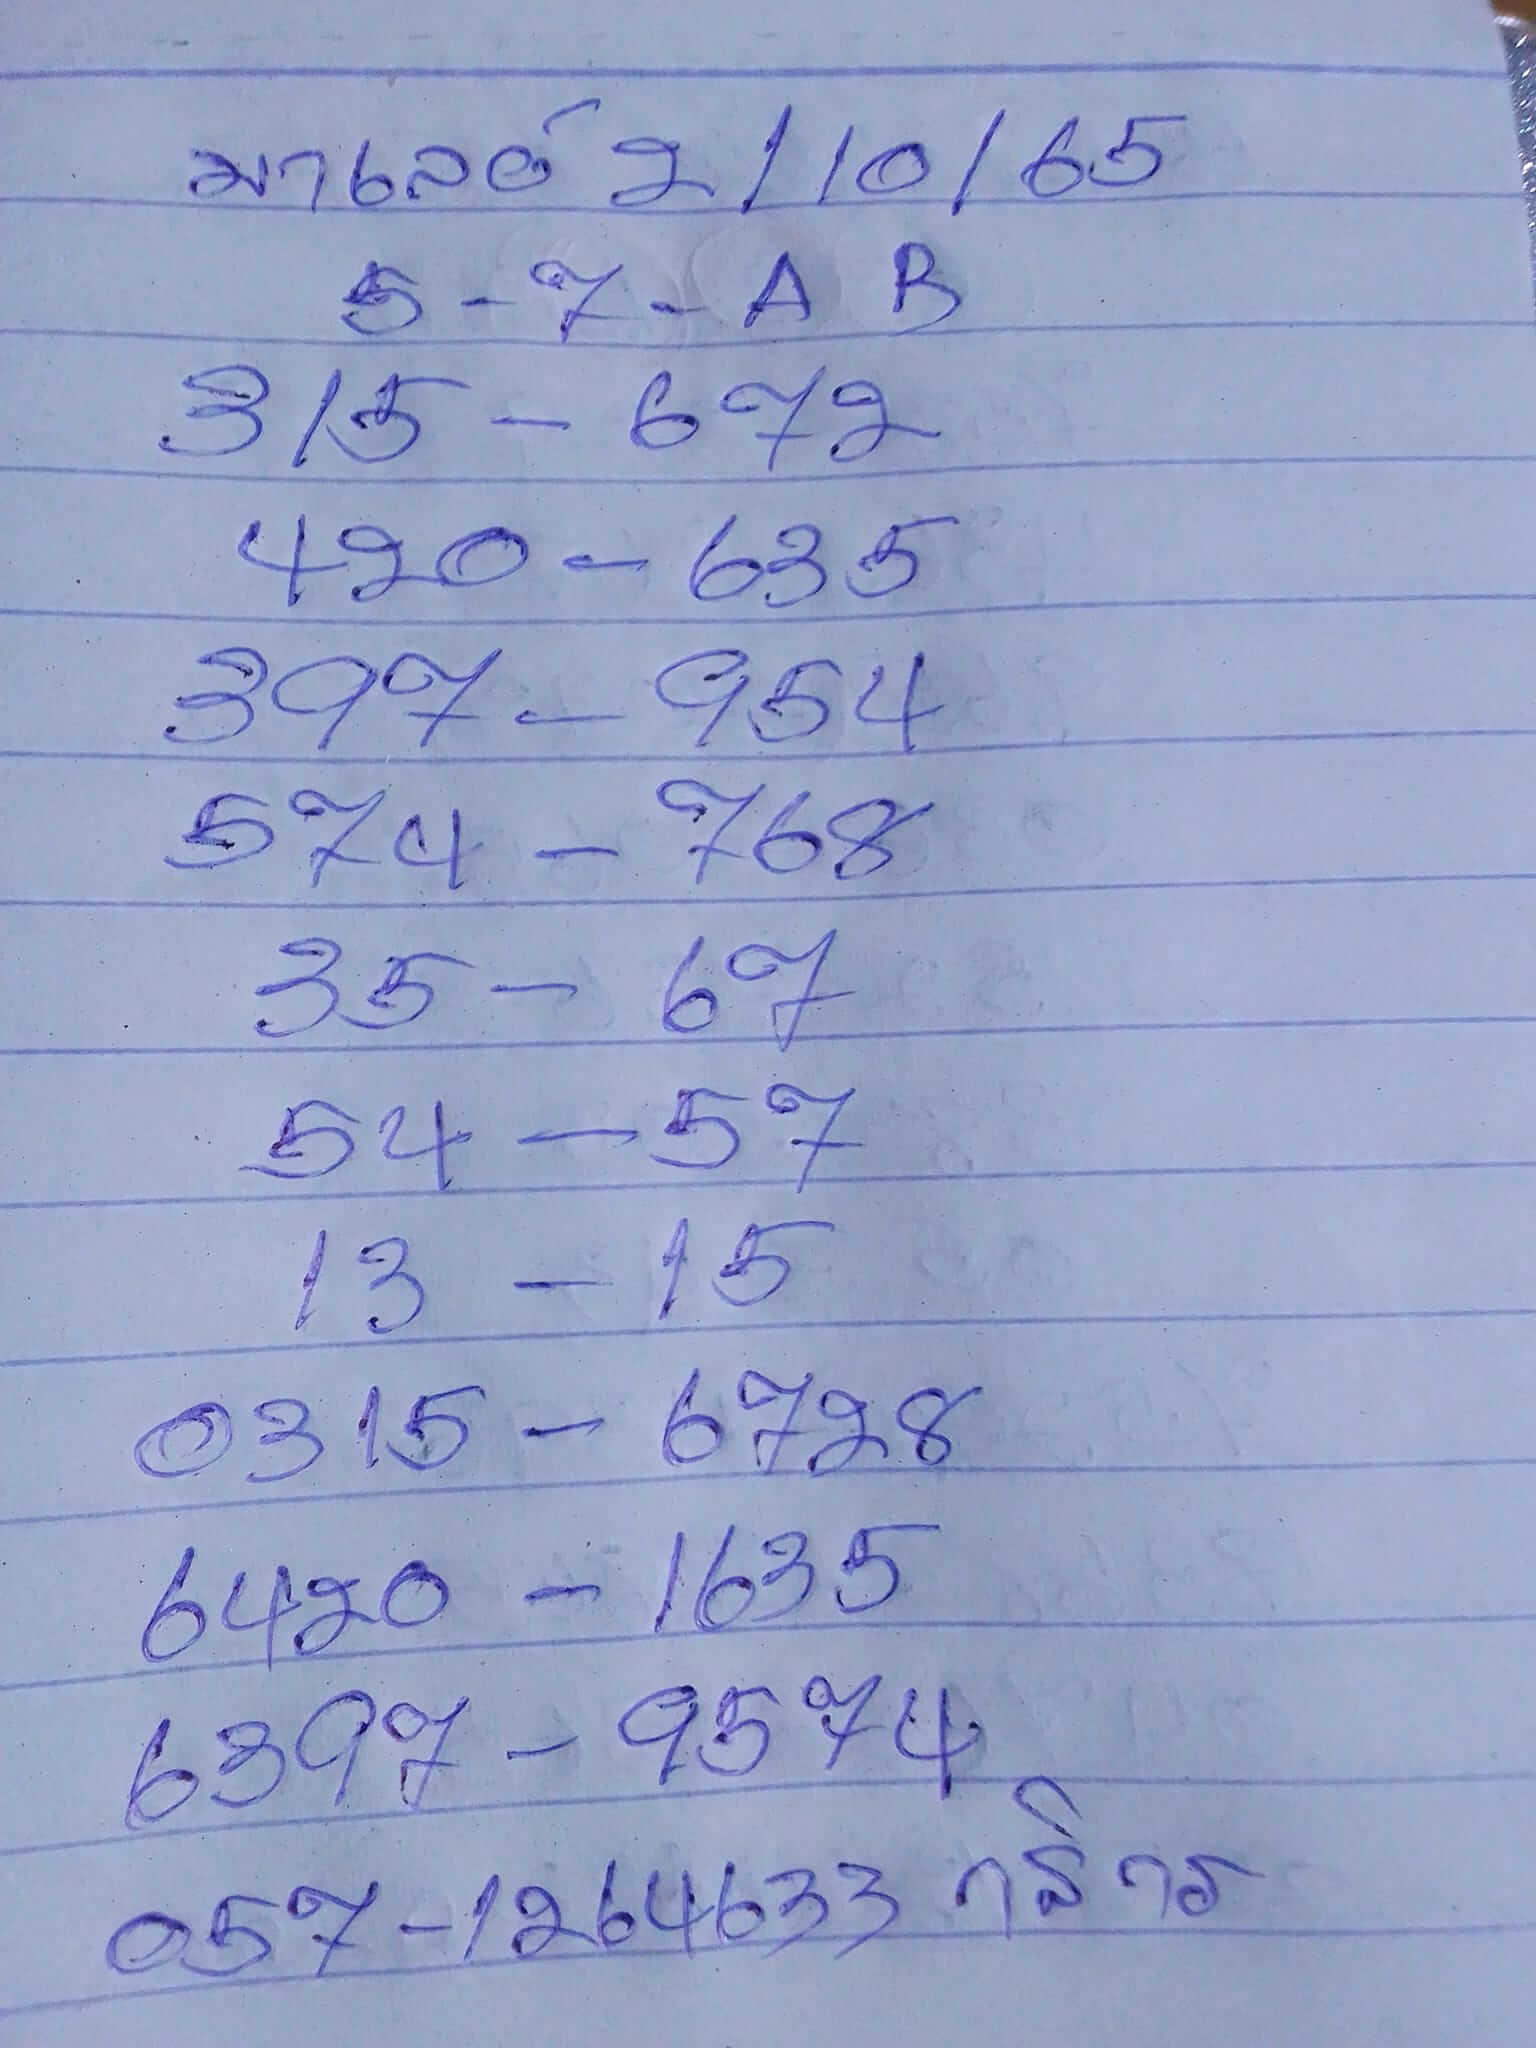 มาเลย์ 2/10/65
5-7-A B
315-672
420-635
397-954
574-768
35-67
54-57
13-15
0315-6728
6420-1635
6397-9574
057-1264633